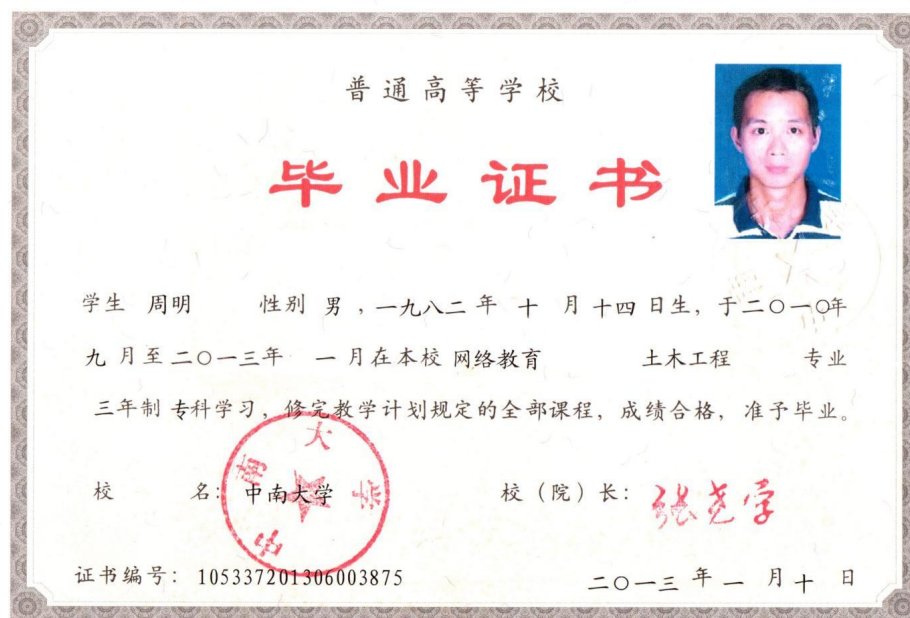 普通高等学校
毕业证书
学生 周明 性别 男 ，一九八二 年 十 月 十四 日生，于二〇一〇年
九 月至二〇一三年 一 月在本校 网络教育 土木工程 专业
三年制 专科学习，修完教学计划规定的全部课程，成绩合格，准予毕业。
中南大学
校 名：中南大学 校（院）长：张尧学
证书编号：105337201306003875 二〇一三 年 一 月 十 日